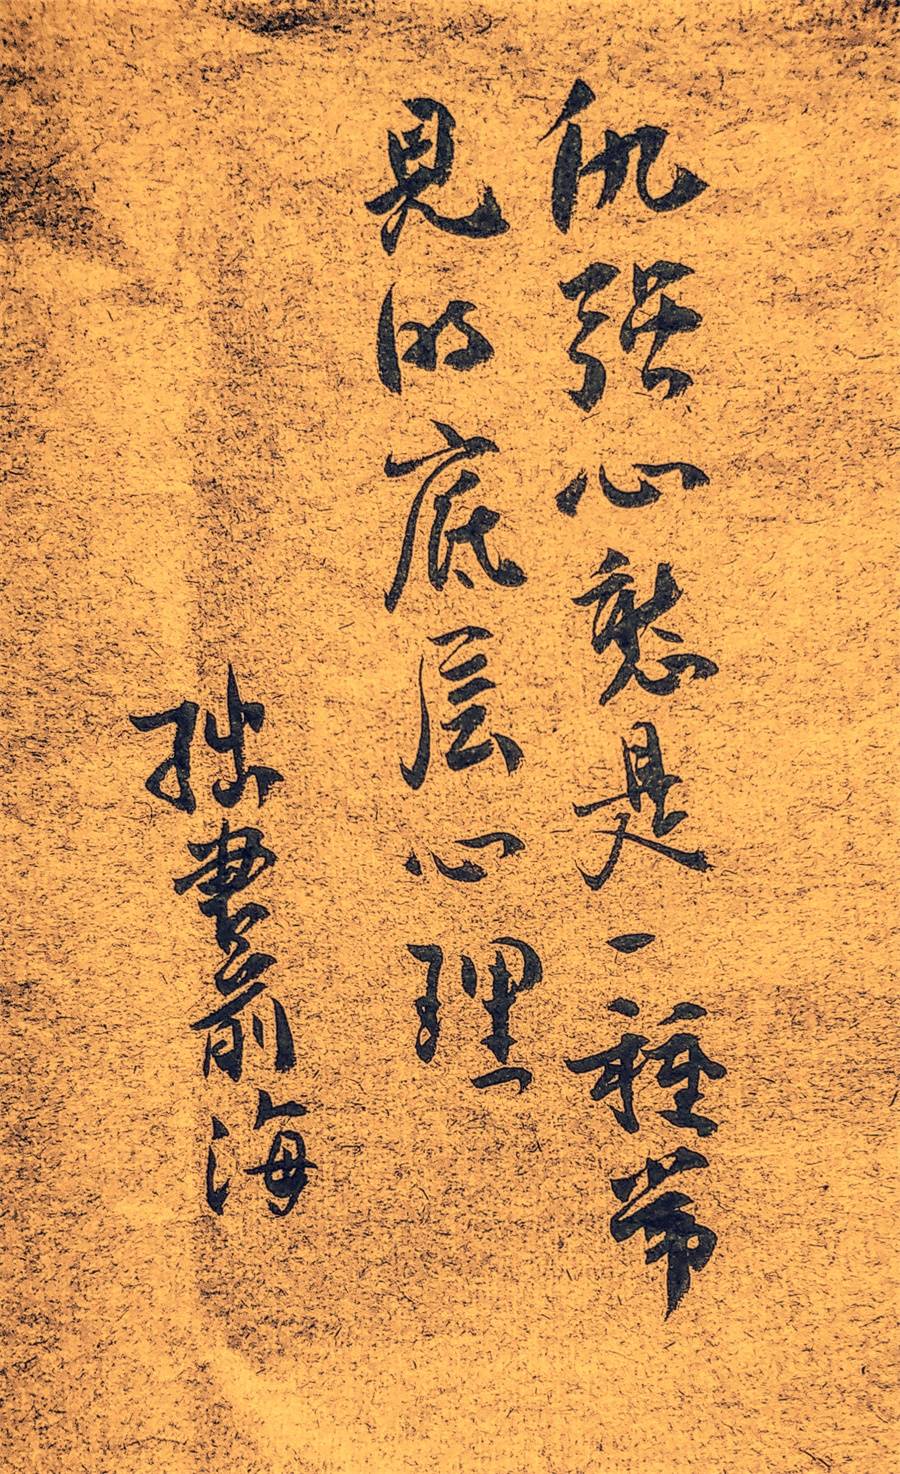 仇强心態是一種常
見的底层心理
拙書前海